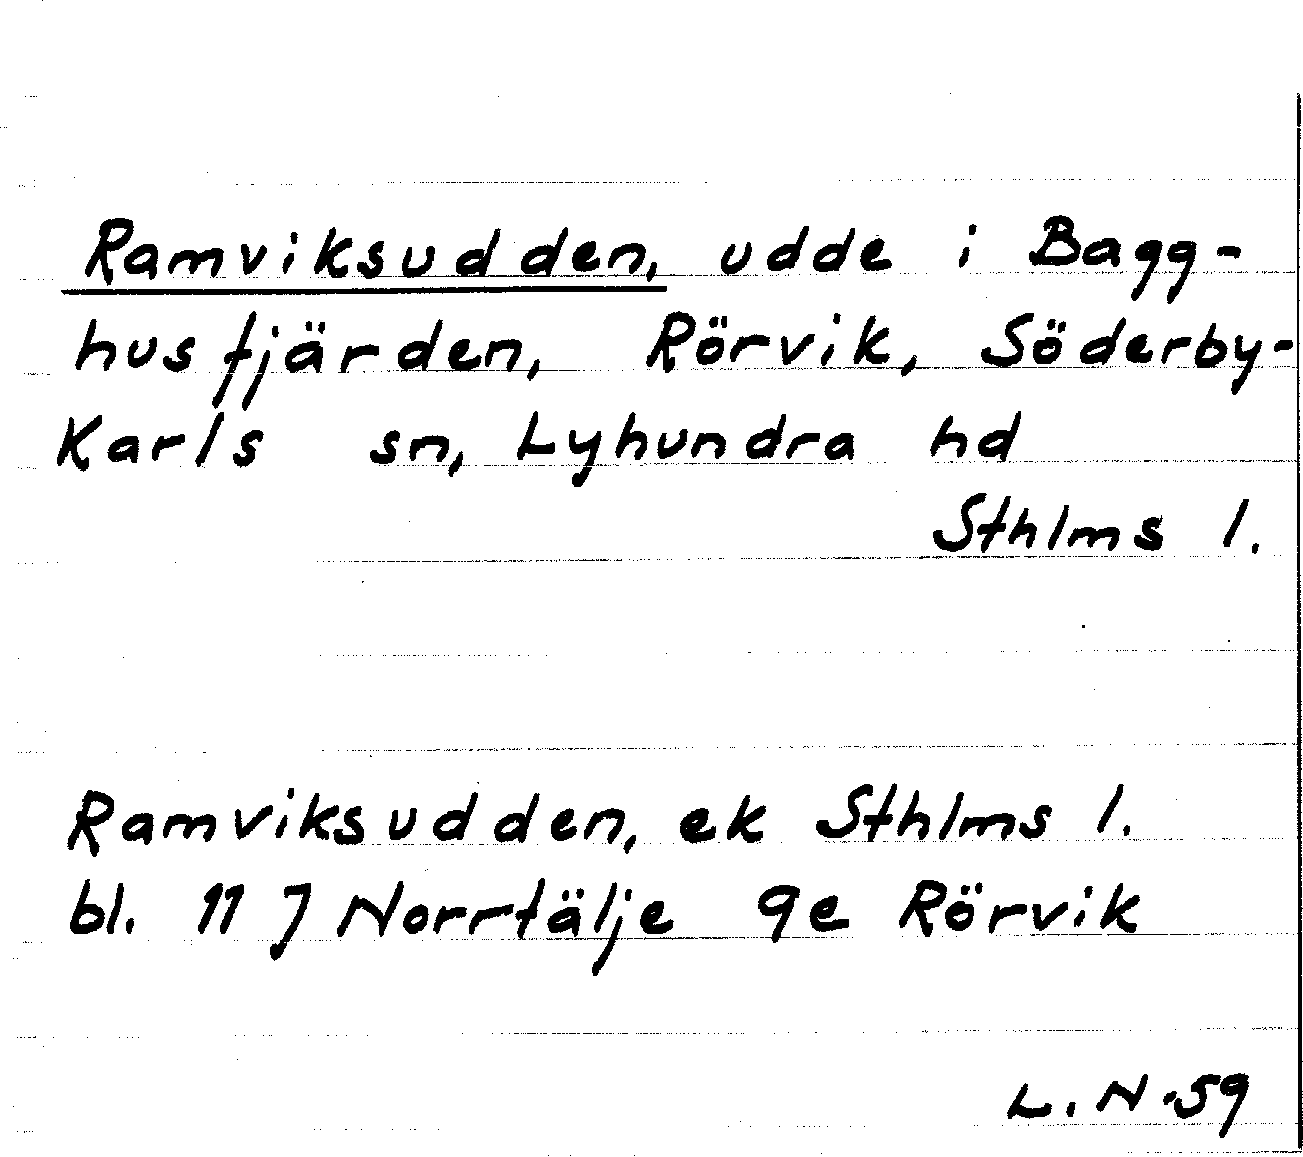 Ramviksudden, udde i Bagg-
husfjärden, Rörvik, Söderby-
Karls sn, Lyhundra hd
Sthlms l.
Ramviksudden, ek Sthlms l.
bl. 11 J Norrtälje 9e Rörvik
L. N -59